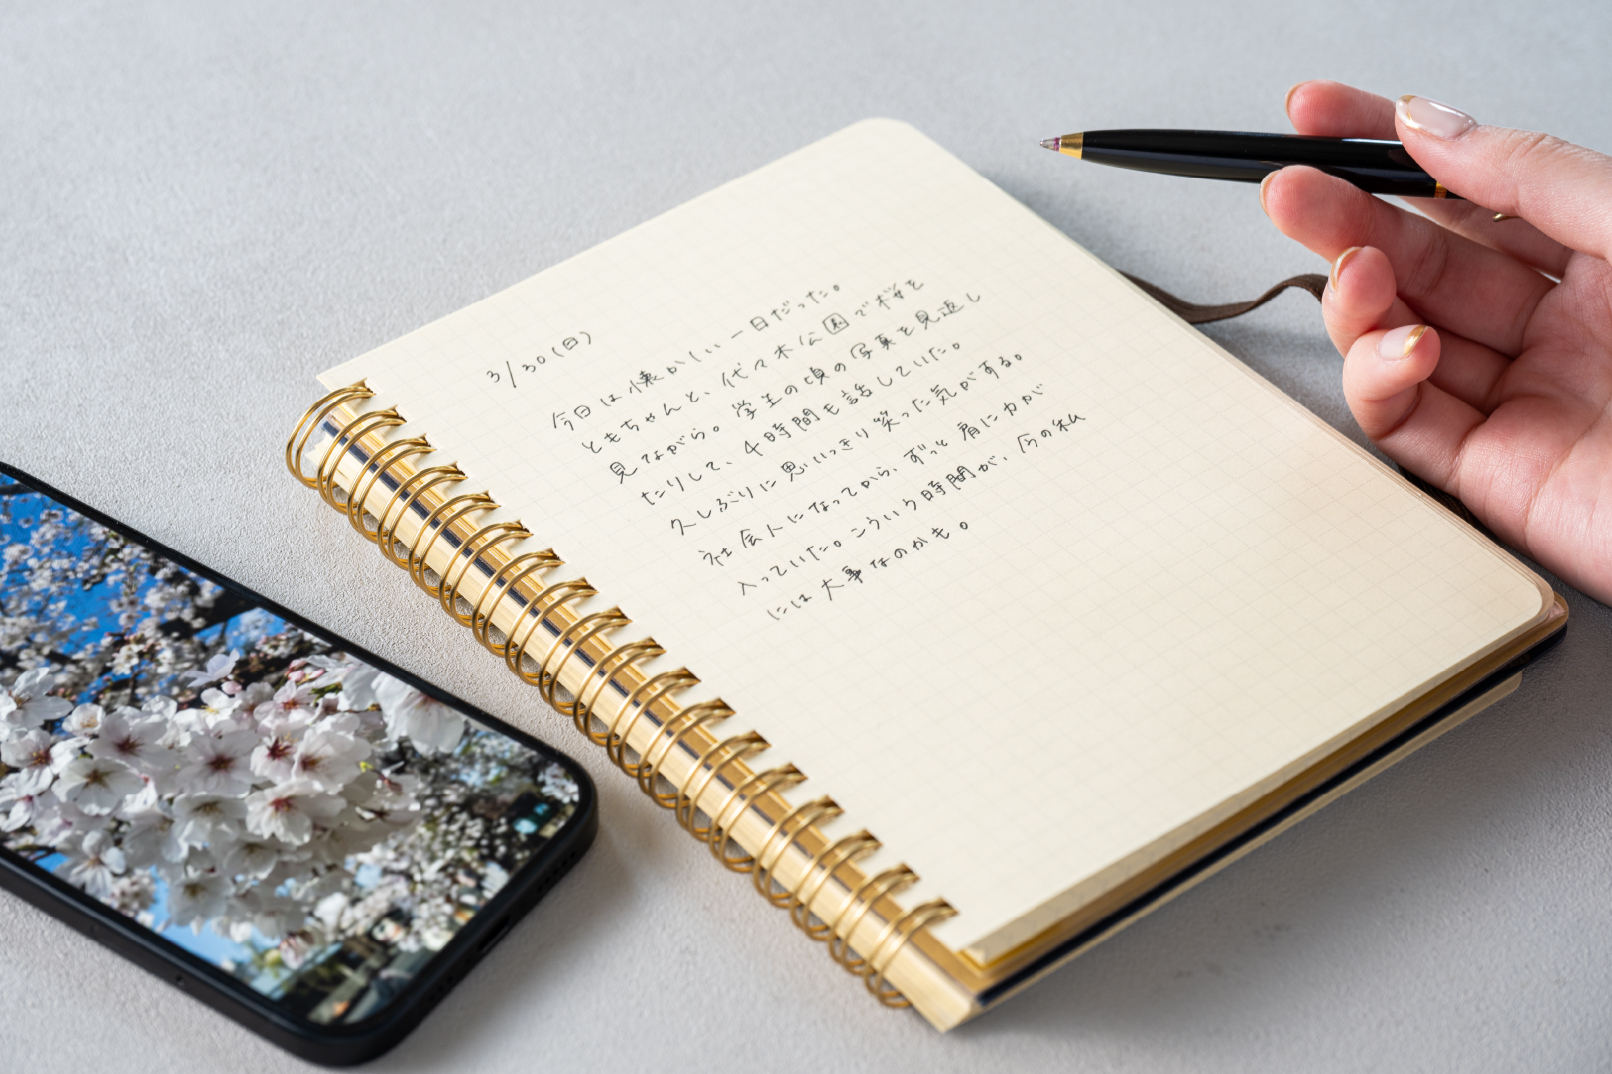 3/30(日)
今日は懐かしい一日だった。
ともちゃんと、代々木公園で桜を
見ながら。学生の頃の写真を見返し
たりして、4時間も話していた。
久しぶりに思いっきり笑った気がする。
社会人になってから、ずっと肩に力が
入っていた。こういう時間が、今の私
には大事なのかも。